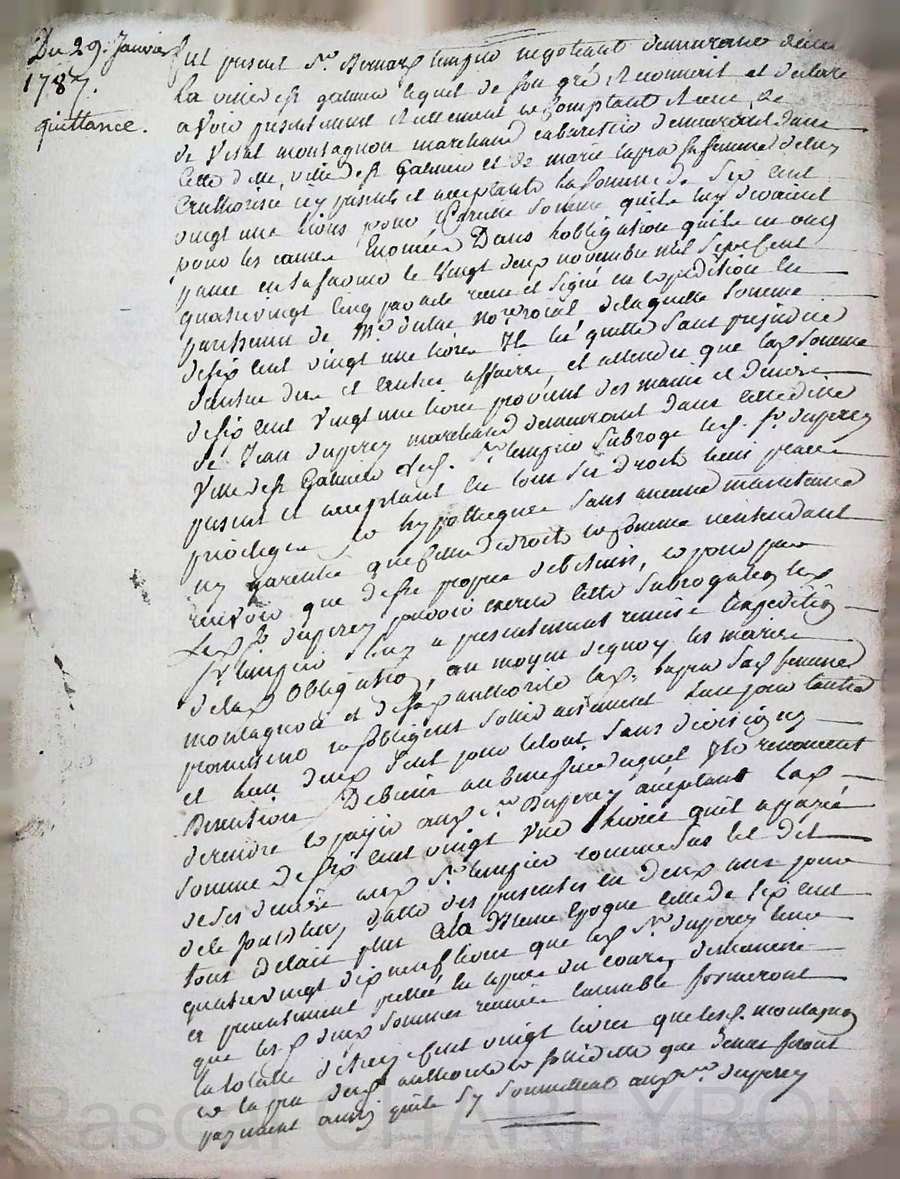 Du 29. Janvier
1787.
quittance.
fut présent Sr. Bernard negotiant demeurant
La ville de st galmier lequel de son gré reconnoit et déclare
avoir presentement et reellement comptant Reçu de
de Vital montagnon marchand cabaretier demeurant dans
Cette de ville de st Galmier et de marie lapra sa femme de luy
authorisée icy presents et acceptants la Somme de Six cent
vingt une livres pour Pareille Somme quils luy devoient
pour les causes Enoncées Dans l'obligation quils en ont
passé en sa faveur le Vingt deux novembre mil Sept Cent
quatre vingt cinq par acte recu et signé en expedition
parchemin de Me. dulac Nore royal de laquelle Somme
de six cent vingt une livres Il les quitte Sans prejudice
d'autre du et autres affaires, et attendu que lad Somme
de six cent Vingt une livre provient des mains et deniers
de Jean duprey marchand demeurant dans cette ditte
Ville de st Galmier led. Sr. Subroge led. Sr. duprey
present et acceptant en tous ses droits lieux place
privileges et hypotheques Sans aucune maintenue
ny garentie que desdits droits et Somme n'entendant
que de ses propres debiteurs, et pour que
led Sr duprey pouvoir exercer cette Subrogation led
Sr luy a presentement remis l'expedition
de lad Obligation, au moyen de quoy les mariés
montagnon et de son authorité lad. lapra sad femme
promettent et s'obligent solidairement l'un pour l'autre
et l'un deux Seul pour le tout Sans division ny
Discution, Benefice auquel Ils renoncent
de rendre et payer aud Sr. Duprey acceptant lad
somme de six cent vingt une livres quil a payée
de ses deniers aud Sr. comme sus est dit
de ce jourdhuy datte des presentes en deux ans pour
tout Delais plus a la Meme Epoque celle de Six cent
quatre vingt dix neuf livres que led Sr. duprey leur
a presentement pretté en especes du cours, de maniere
que les d deux sommes reunies ensemble formeront
la totalle de treize Cent vingt livres que lesd. montagnon
et lapra de son authorité et Solidité que dessus feront
payement ainsi quils s'y soumettent aud Sr. duprey
Pascal CHAREYRON